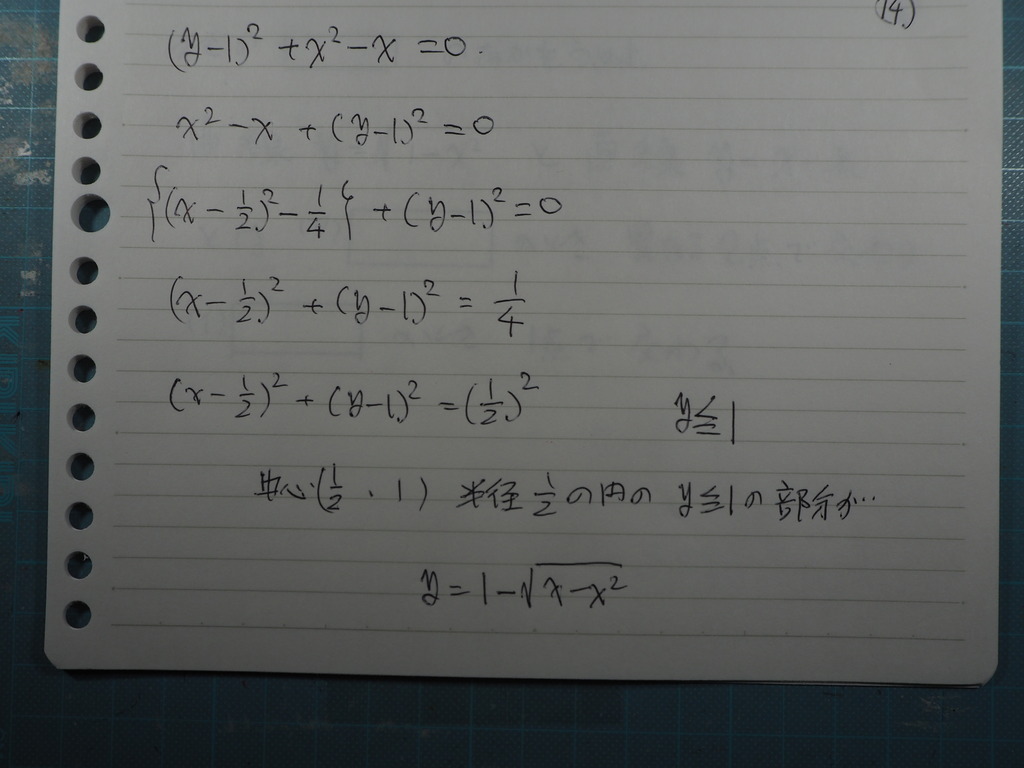 14.)
(y-1)² + x² - x = 0.
x² - x + (y-1)² = 0
{(x - 1/2)² - 1/4} + (y-1)² = 0
(x - 1/2)² + (y-1)² = 1/4
(x - 1/2)² + (y-1)² = (1/2)² y≦1
中心(1/2、1) 半径 1/2 の円の y≦1 の部分が…
y = 1 - √(x - x²)